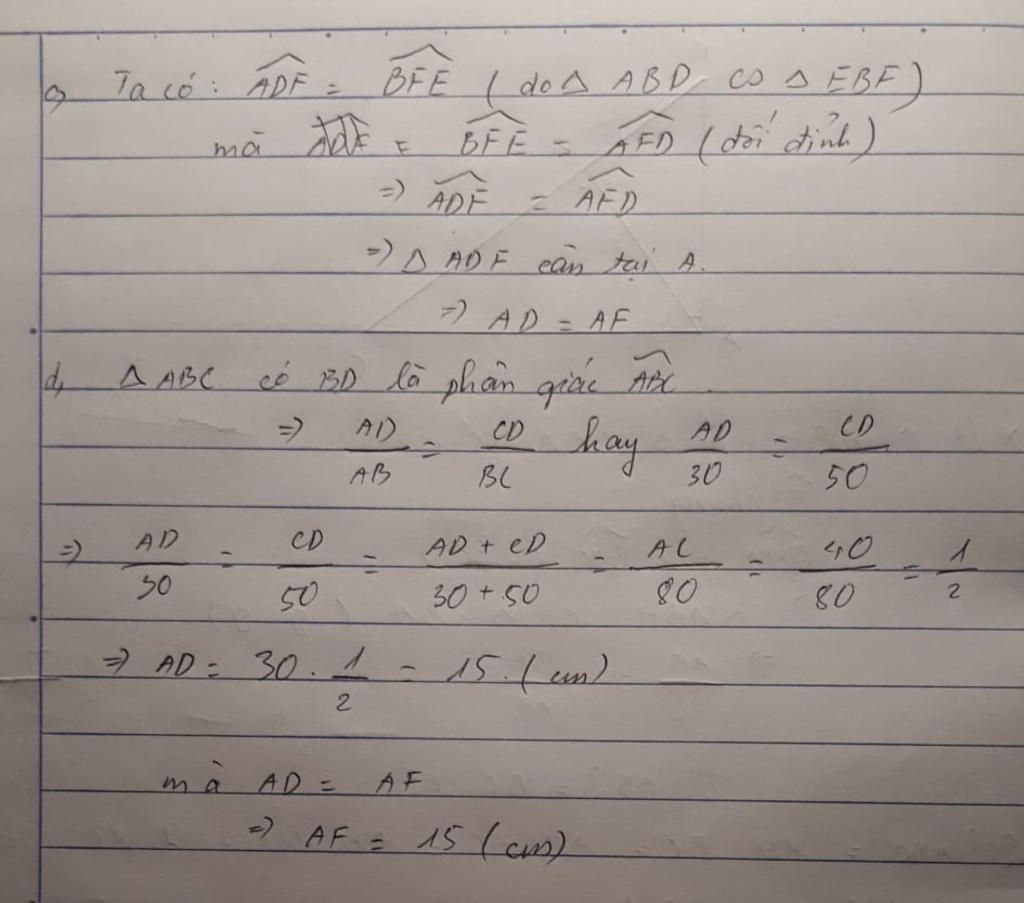 c, Ta có: \widehat{ADF} = \widehat{BFE} (do Δ ABD ∽ Δ EBF)
mà = \widehat{BFE} = \widehat{AFD} (đối đỉnh)
=> \widehat{ADF} = \widehat{AFD}
=> Δ ADF cân tại A.
=> AD = AF
d, Δ ABC có BD là phân giác \widehat{ABC}.
=> AD/AB = CD/BC hay AD/30 = CD/50
=> AD/30 = CD/50 = AD + CD/30 + 50 = AC/80 = 40/80 = 1/2
=> AD = 30 . 1/2 = 15 (cm)
mà AD = AF
=> AF = 15 (cm)